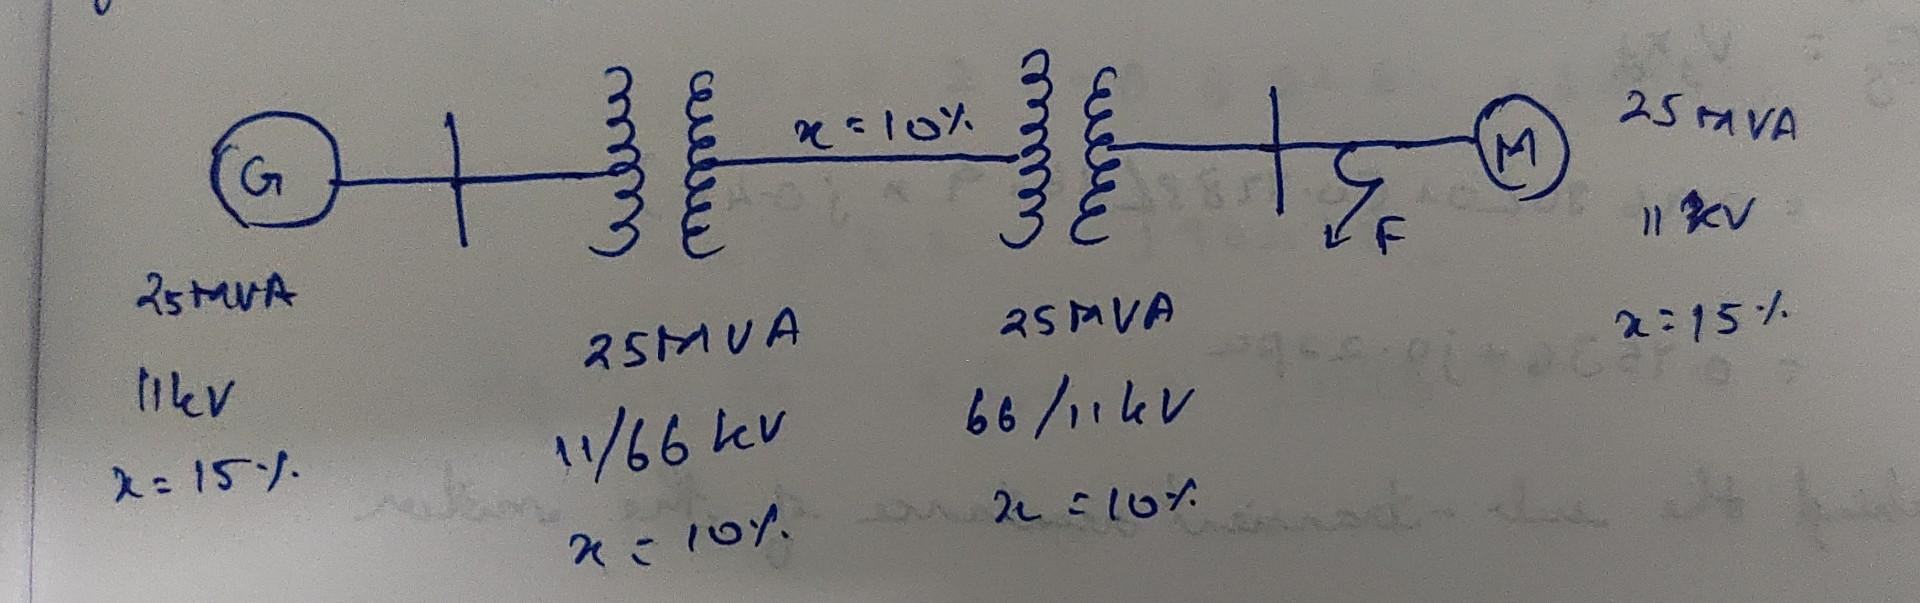 x = 10%
G
M
F
25 MVA
11 kV
x = 15%
25 MVA
11/66 kV
x = 10%
25 MVA
66/11 kV
x = 10%
25 MVA
11 kV
x = 15%